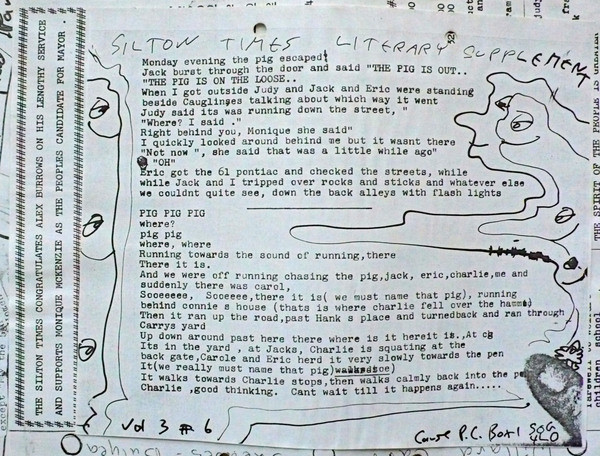 SILTON TIMES LITERARY SUPPLEMENT
Monday evening the pig escaped!
Jack burst through the door and said "THE PIG IS OUT..
"THE PIG IS ON THE LOOSE..
When I got outside Judy and Jack and Eric were standing
beside Cauglinges talking about which way it went
Judy said its was running down the street, "
"Where? I said ."
Right behind you, Monique she said"
I quickly looked around behind me but it wasnt there
"Not now ", she said that was a little while ago"
"OH"
Eric got the 61 pontiac and checked the streets, while
while Jack and I tripped over rocks and sticks and whatever else
we couldnt quite see, down the back alleys with flash lights
PIG PIG PIG
where?
pig pig
where, where
Running towards the sound of running,there
There it is.
And we were off running chasing the pig,jack, eric,charlie,me and
suddenly there was carol,
Sooeeeee, Sooeeee,there it is( we must name that pig), running
behind connie s house (thats is where charlie fell over the
Then it ran up the road,past Hank s place and turnedback and ran through
Carrys yard
Up down around past here there where is it hereit is,.At
Its in the yard , at Jacks, Charlie is squating at the
back gate,Carole and Eric herd it very slowly towards the pen
It(we really must name that pig)
It walks towards Charlie stops,then walks calmly back into the
Charlie ,good thinking. Cant wait till it happens again.....
Vol 3 # 6
P.C. Box 1 SOG
4L0
THE SILTON TIMES CONGRATULATES ALEX BURROWS ON HIS LENGTHY SERVICE
AND SUPPORTS MONIQUE MCKENZIE AS THE PEOPLES CANDIDATE FOR MAYOR .
THE SPIRIT OF THE PEOPLE IS
children school